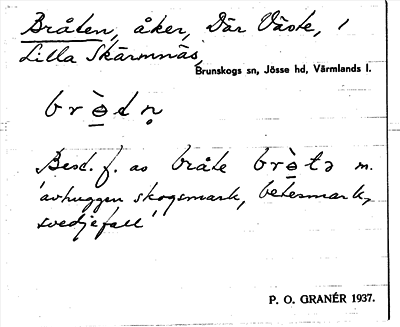 Bråten, åker, Där Väste, 1
Lilla Skärmnäs,
Brunskogs sn, Jösse hd, Värmlands l.
brὲdn̥
Best. f. av bråte brὲtə m.
'avhuggen skogsmark, betesmark,
svedjefall'
P. O. GRANÉR 1937.